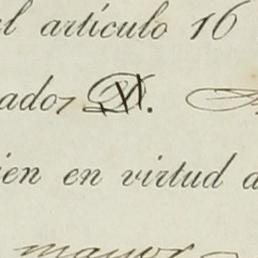 l artículo 16
ado, D.
en en virtud d
mayor